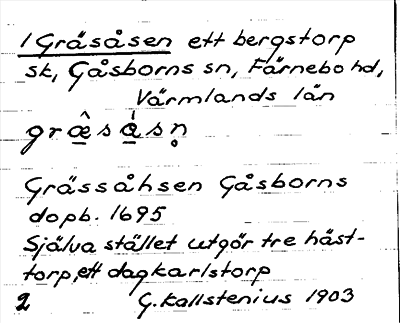 1 Gräsåsen ett bergstorp
sk, Gåsborns sn, Färnebo hd,
Värmlands län
græ̂sa̍sn̥
Grässåhsen Gåsborns
dopb. 1695
Själva stället utgör tre häst-
torp, ett dagkarlstorp
2 G. Kallstenius 1903